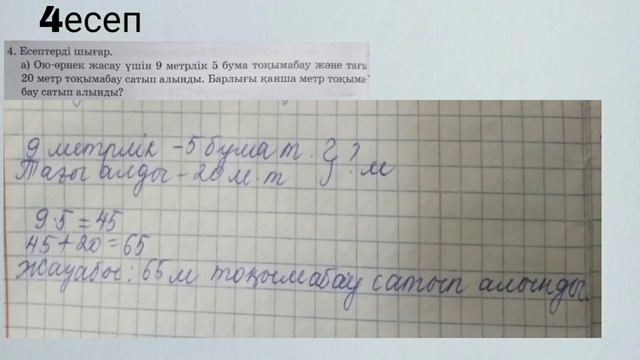 4есеп
4. Есептерді шығар.
а) Ою-өрнек жасау үшін 9 метрлік 5 бума тоқымабау және тағы
20 метр тоқымабау сатып алынды. Барлығы қанша метр тоқыма-
бау сатып алынды?
9 метрлік - 5 бума т. ? } ? м
Тағы алды - 20 м. т
9·5=45
45+20=65
Жауабы: 65м тоқымабау сатып алынды.